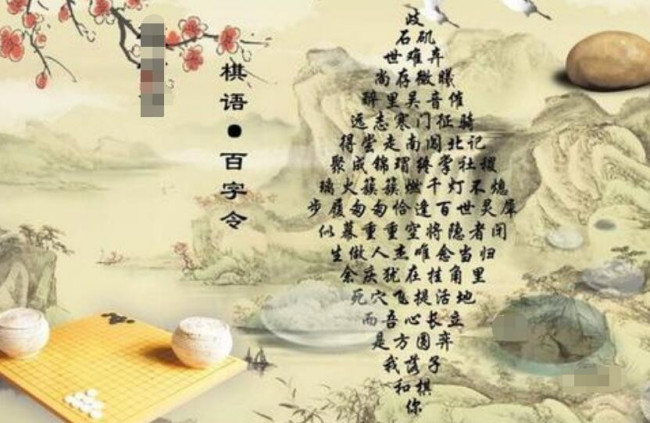 棋语•百字令
歧
石矶
世难弃
尚存微曦
醉里吴音催
远志寒门征骑
得尝走南闯北记
聚成锦瑁终掌社稷
璃火簇簇燃千灯不熄
步履匆匆恰逢百世灵犀
似幕重重空将隐者闭
生做人杰唯念当归
余庆犹在挂角里
死穴飞提活地
而吾心长立
是方圆弈
我落子
和棋
你